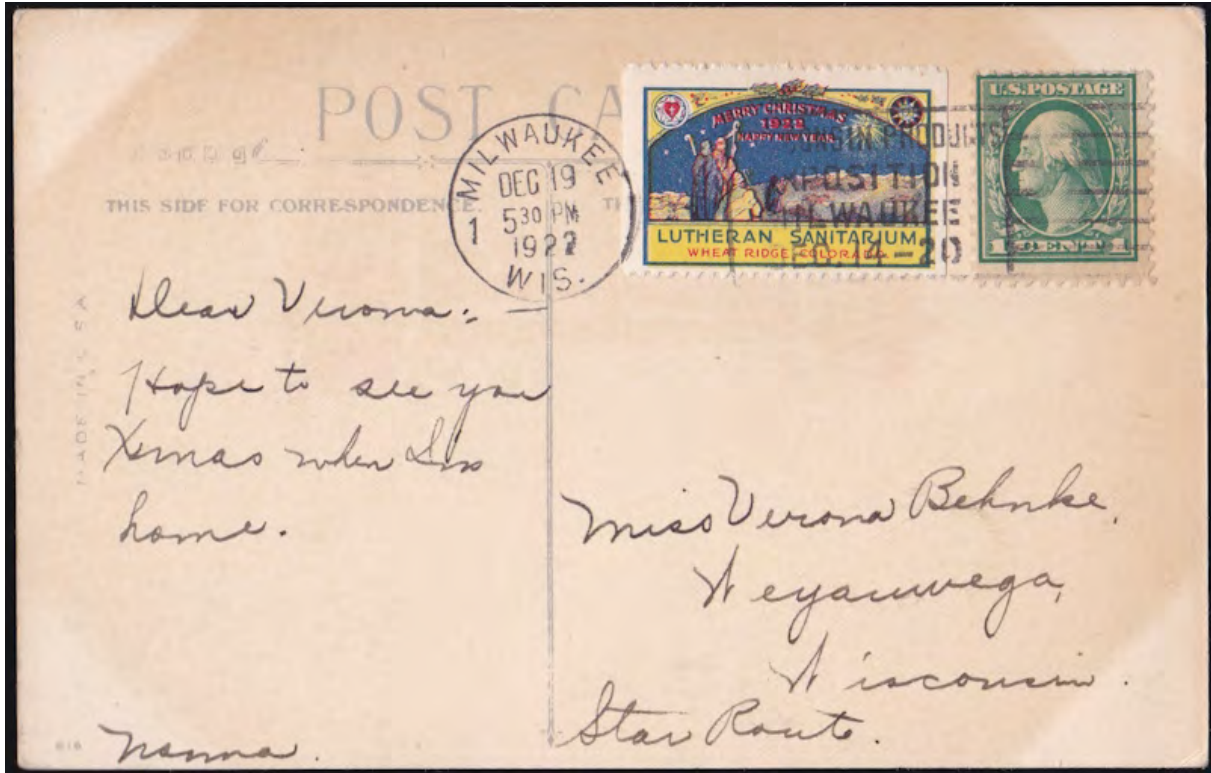 POST
THIS SIDE FOR CORRESPONDENCE.
MILWAUKEE
DEC 19
5 30 PM
1922
1
WIS.
MERRY CHRISTMAS
1922
HAPPY NEW YEAR
LUTHERAN SANITARIUM
WHEAT RIDGE, COLORADO
PRODUCTS
XPOSITION
MILWAUKEE
20
U.S. POSTAGE
1 CENT 1
MADE IN U S A
Dear Verona:-
Hope to see you
Xmas when I'm
home.
Nanna.
Miss Verona Behnke,
Weyauwega,
Wisconsin.
Star Route.